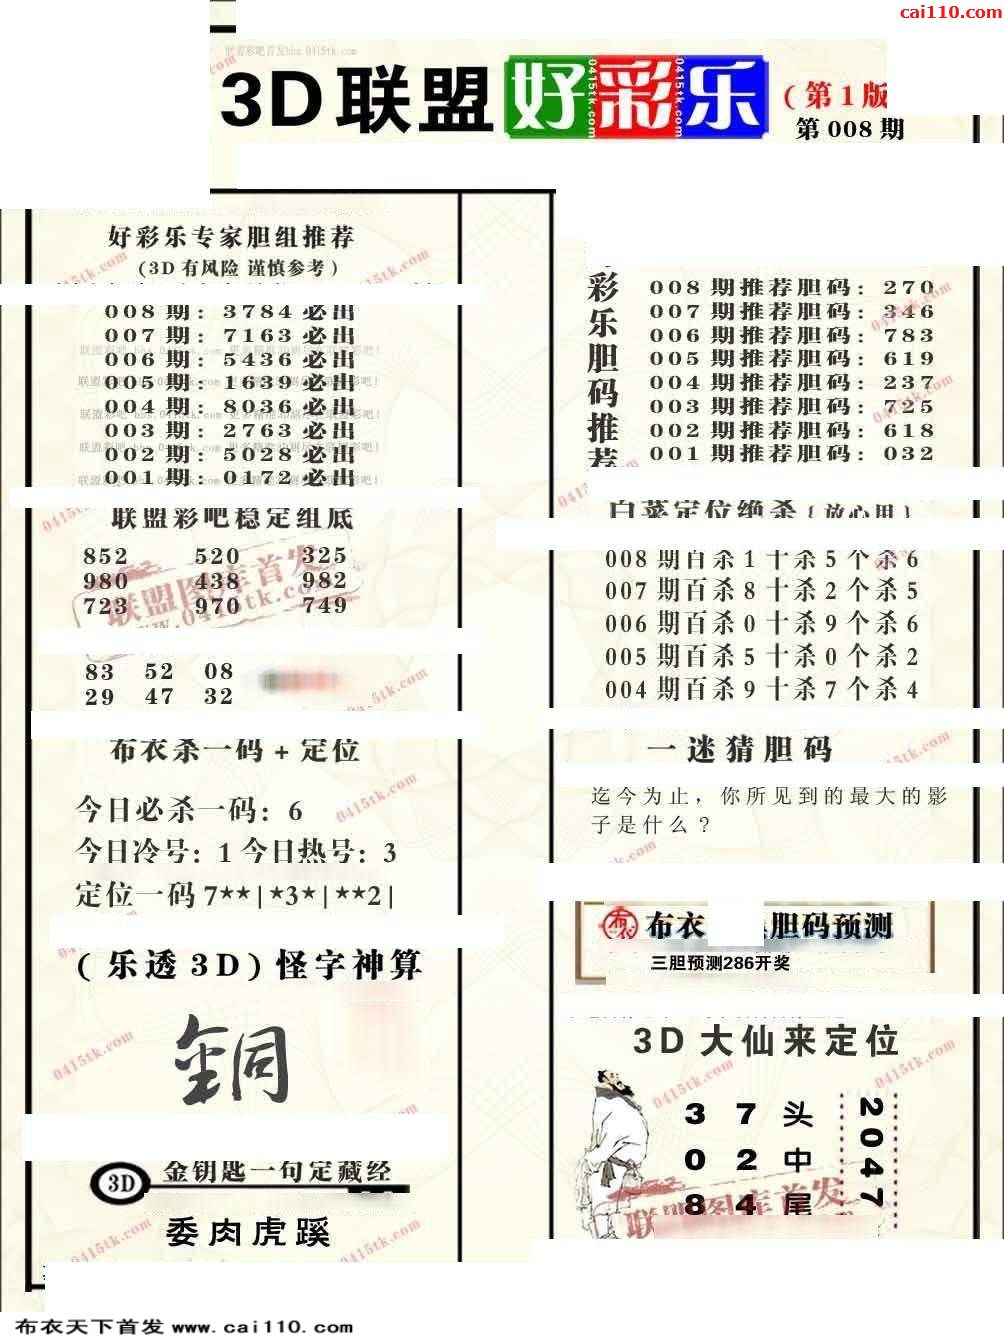 cai110.com
3D联盟好彩乐(第1版
第008期
好彩乐专家胆组推荐
(3D有风险 谨慎参考)
008期: 3784必出
007期: 7163必出
006期: 5436必出
005期: 1639必出
004期: 8036必出
003期: 2763必出
002期: 5028必出
001期: 0172必出
联盟彩吧稳定组底
852 520 325
980 438 982
723 970 749
83 52 08
29 47 32
布衣杀一码+定位
今日必杀一码: 6
今日冷号: 1 今日热号: 3
定位一码 7**|*3*|**2|
(乐透3D)怪字神算
3D 金钥匙一句定藏经
委肉虎蹊
彩乐胆码推荐
008期推荐胆码: 270
007期推荐胆码: 346
006期推荐胆码: 783
005期推荐胆码: 619
004期推荐胆码: 237
003期推荐胆码: 725
002期推荐胆码: 618
001期推荐胆码: 032
白菜定位绝杀(放心用)
008期百杀1十杀5个杀6
007期百杀8十杀2个杀5
006期百杀0十杀9个杀6
005期百杀5十杀0个杀2
004期百杀9十杀7个杀4
一迷猜胆码
迄今为止，你所见到的最大的影
子是什么？
布衣 胆码预测
三胆预测286开奖
3D大仙来定位
3 7 头
0 2 中
8 4 尾
2047
联盟图库首发
0415tk.com
布衣天下首发 www.cai110.com